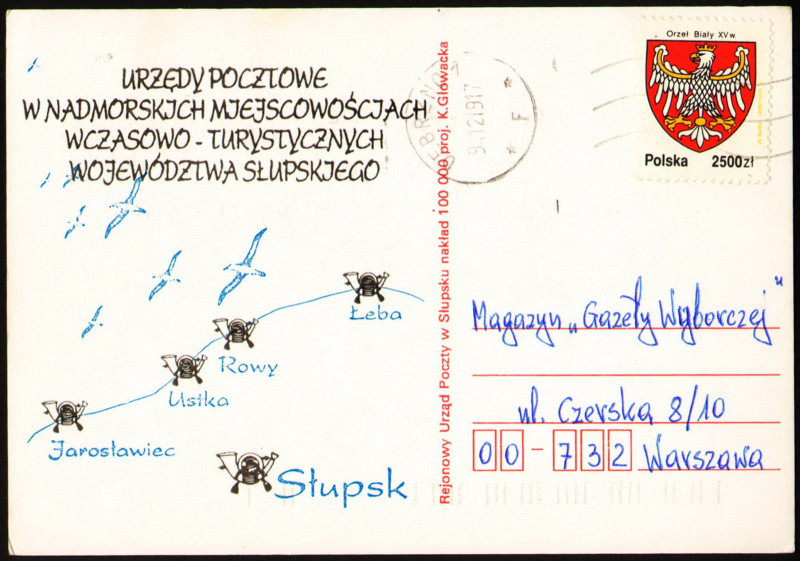 URZĘDY POCZTOWE
W NADMORSKICH MIEJSCOWOŚCIACH
WCZASOWO - TURYSTYCZNYCH
WOJEWÓDZTWA SŁUPSKIEGO
Łeba
Rowy
Ustka
Jarosławiec
Słupsk
Rejonowy Urząd Poczty w Słupsku nakład 100 000 proj. K.Głowacka
F
Orzeł Biały XVw.
Polska 2500zł
Magazyn „Gazety Wyborczej"
ul. Czerska 8/10
00-732 Warszawa